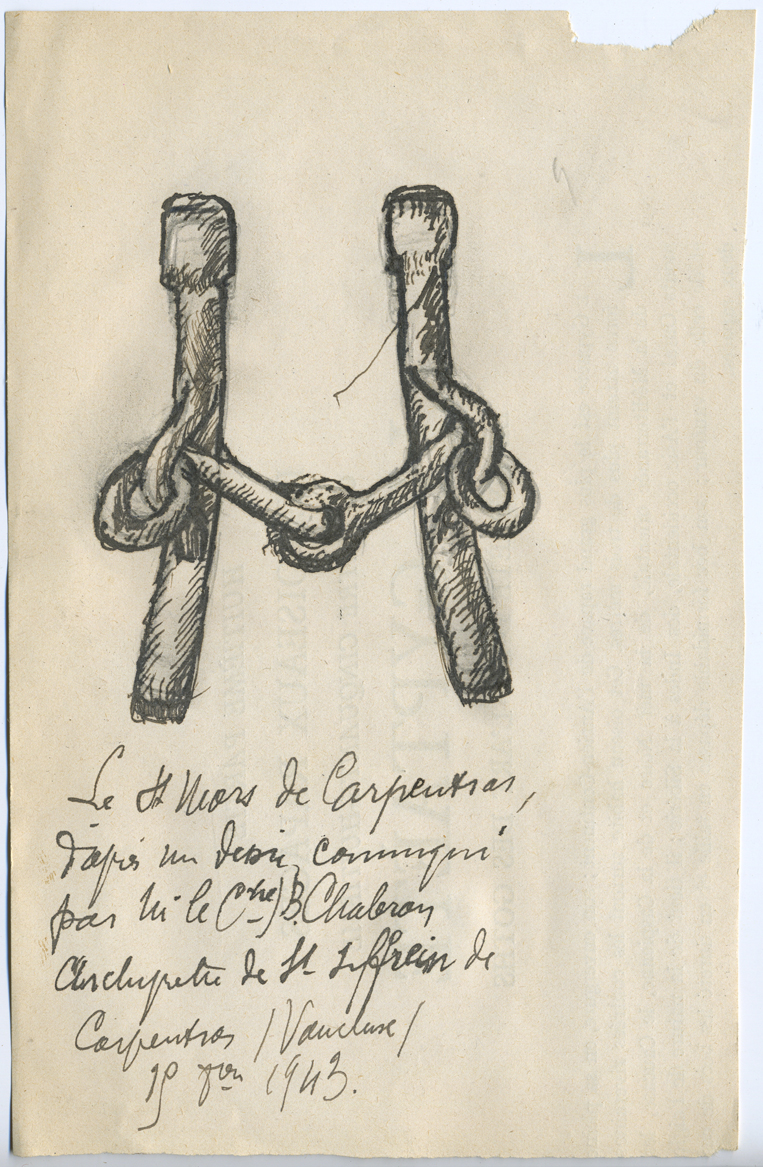 Le St Mors de Carpentras,
d'après un dessin communiqué
par Mr le Cne J B. Chabran
Archiprêtre de St Siffrein de
Carpentras (Vaucluse)
1943.